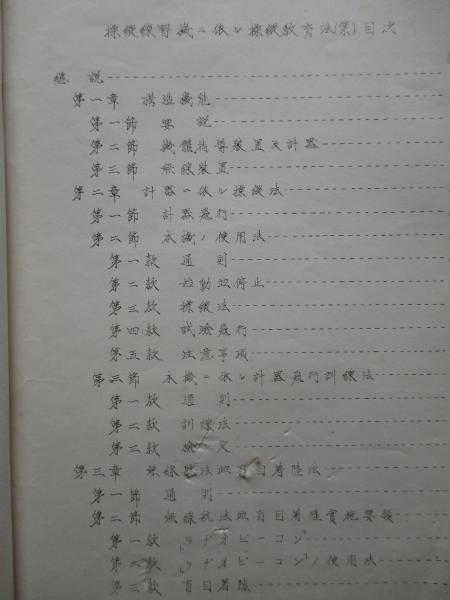 操縱練習機ニ依ル操縱教育法(案)目次
總說
第一章 構造機能
第一節 要說
第二節 機體指導裝置及計器
第三節 無線裝置
第二章 計器ニ依ル操縱法
第一節 計器飛行
第二節 本機ノ使用法
第一款 通則
第二款 始動並停止
第三款 操縱法
第四款 試驗飛行
第五款 注意事項
第三節 本機ニ依ル計器飛行訓練法
第一款 通則
第二款 訓練法
第三款 檢定
第三章 無線航法並盲目着陸法
第一節 通則
第二節 無線航法並盲目着陸實施要領
第一款 「ラヂオビーコン」
第二款 「ラヂオビーコン」ノ使用法
第三款 盲目着陸